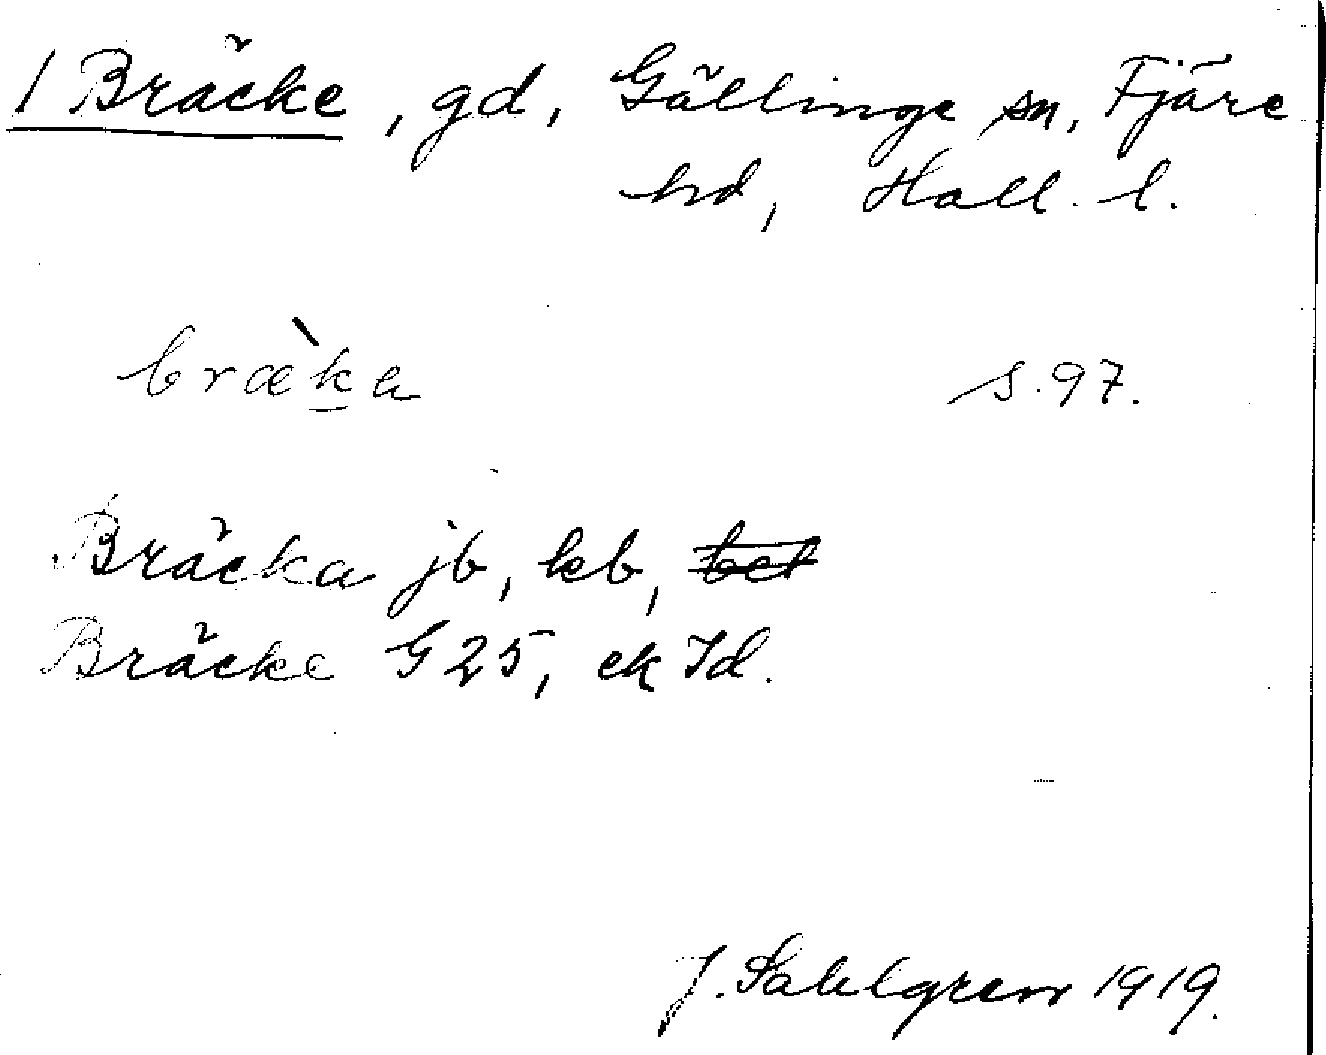 1 Bräcke, gd, Gällinge sn, Fjäre
hd, Hall. l.
bræ̀ka s. 97.
Bräcka jb, kb, ~~bet~~
Bräcke G 25, ek Id.
J. Sahlgren 1919.